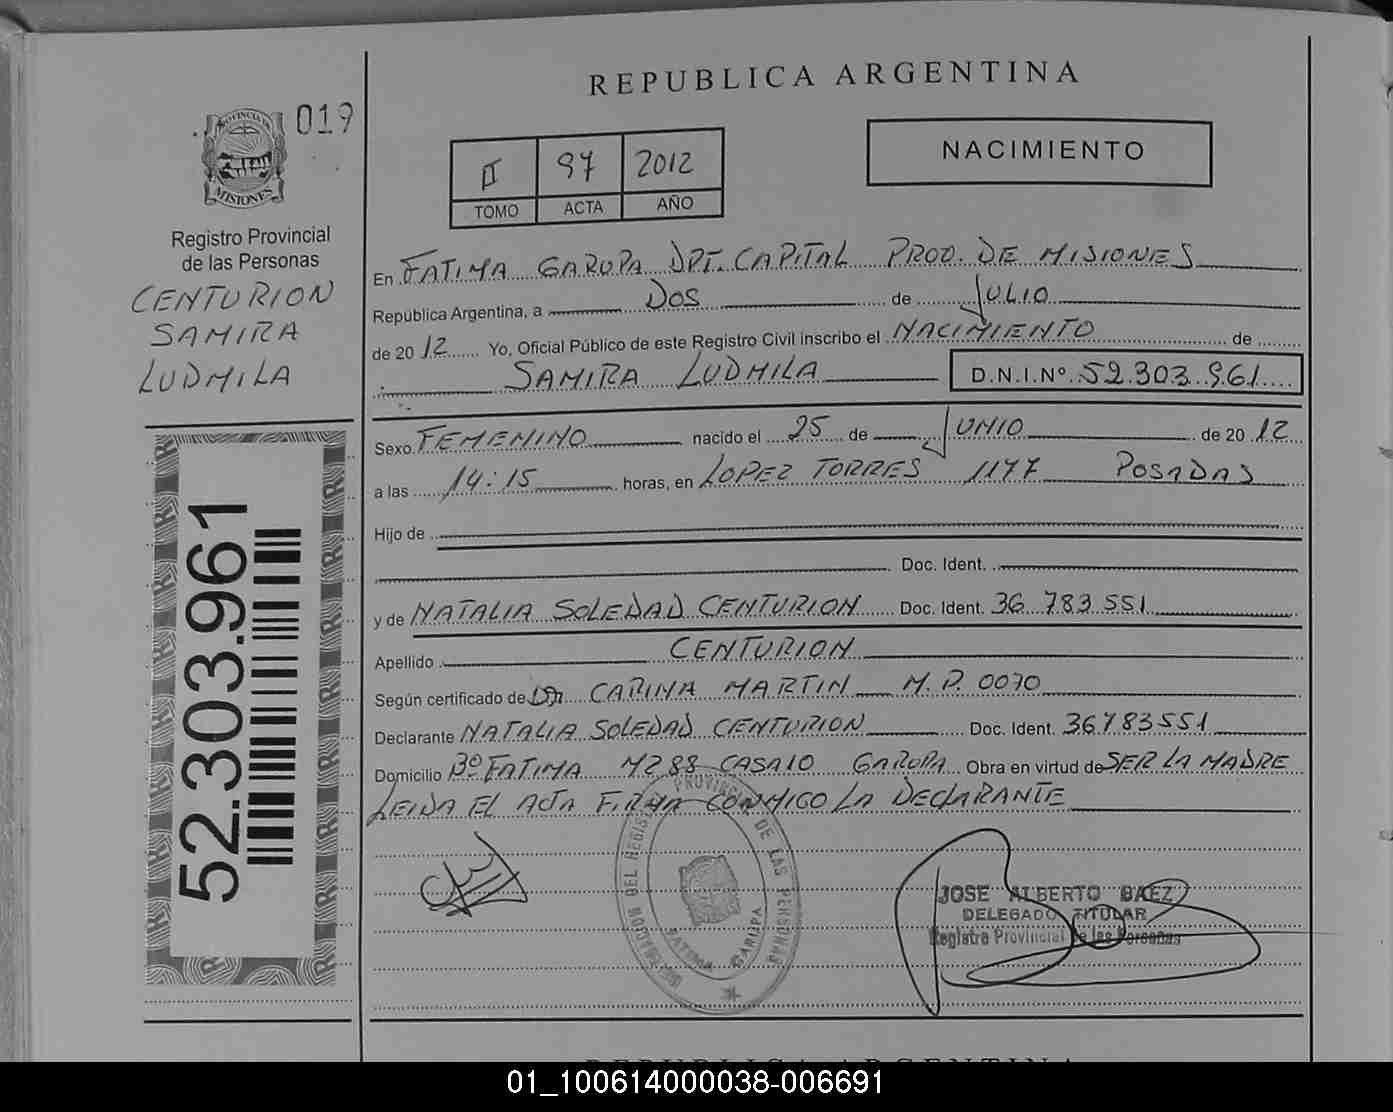 REPUBLICA ARGENTINA
019
PROVINCIA DE
MISIONES
Registro Provincial
de las Personas
CENTURION
SAMIRA
LUDMILA
52.303.961
II 97 2012
TOMO ACTA AÑO
NACIMIENTO
En FATIMA GARUPA DPT. CAPITAL PROV. DE MISIONES
República Argentina, a DOS de JULIO
de 2012 Yo, Oficial Público de este Registro Civil inscribo el NACIMIENTO de
SAMIRA LUDMILA D.N.I.Nº 52.303.961
Sexo FEMENINO nacido el 25 de JUNIO de 2012
a las 14:15 horas, en LOPEZ TORRES 1177 POSADAS
Hijo de
Doc. Ident.
y de NATALIA SOLEDAD CENTURION Doc. Ident. 36.783.551
Apellido CENTURION
Según certificado de Dra CARINA MARTIN M.P. 0070
Declarante NATALIA SOLEDAD CENTURION Doc. Ident. 36783551
Domicilio Bº FATIMA MZ 88 CASA 10 GARUPA Obra en virtud de SER LA MADRE
LEIDA EL ACTA FIRMA CONMIGO LA DECLARANTE
DELEGACION DEL REGISTRO PROVINCIAL DE LAS PERSONAS
FATIMA GARUPA
JOSE ALBERTO BAEZ
DELEGADO TITULAR
Registro Provincial de las Personas
REPUBLICA ARGENTINA
01_100614000038-006691